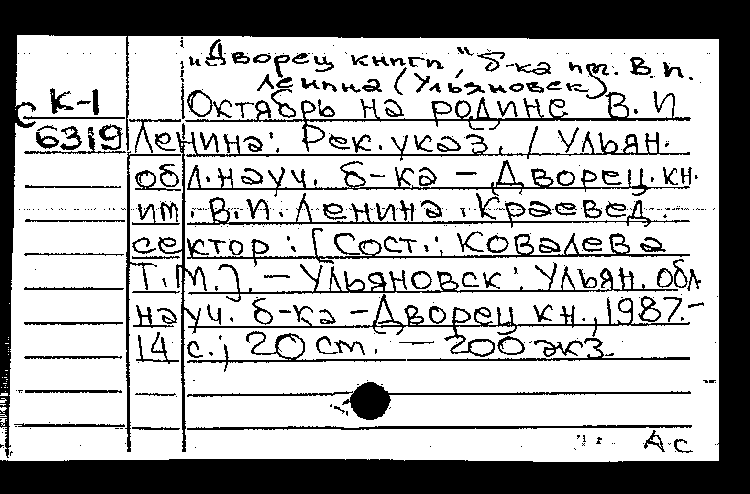 "Дворец книги", б-ка им. В.И.
Ленина (Ульяновск)
К-1 Октябрь на родине В. И
С 6319 Ленина: Рек. указ. / Ульян.
обл. науч. б-ка - Дворец. кн.
им. В. И. Ленина. Краевед.
сектор: [Сост.: Ковалева
Т.М.]. - Ульяновск: Ульян. обл.
науч. б-ка - Дворец кн., 1987.-
14 с.; 20 см. - 200 экз.
Ас